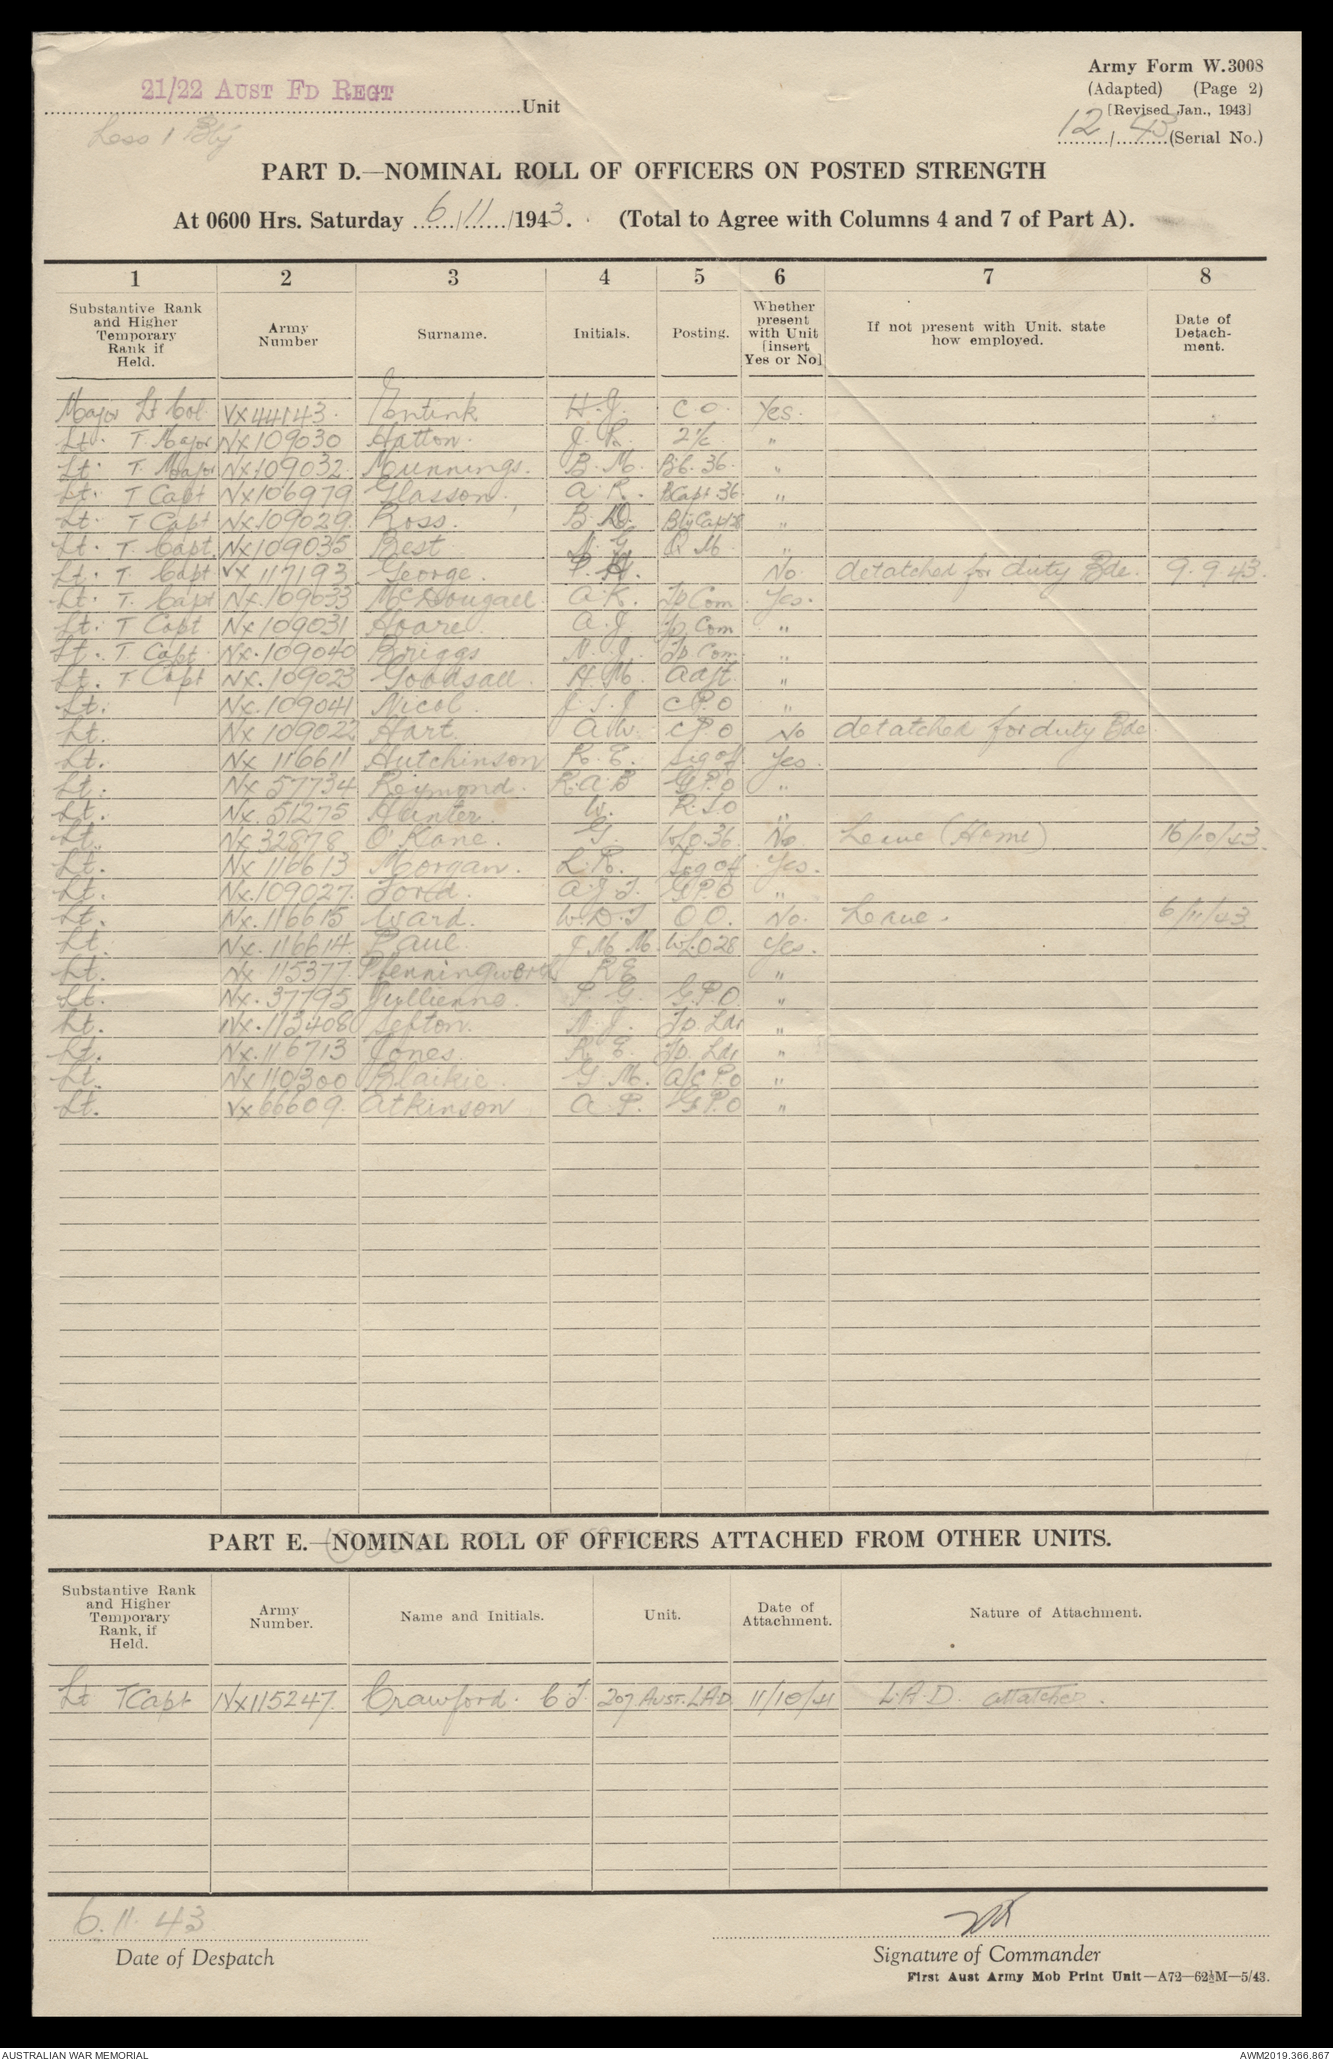 Army Form W.3008
21/22 AUST FD REGT Unit
(Adapted) (Page 2)
[Revised Jan., 1943]
Less 1 Bty
12/43 (Serial No.)
PART D.—NOMINAL ROLL OF OFFICERS ON POSTED STRENGTH
At 0600 Hrs. Saturday 6/11/1943. (Total to Agree with Columns 4 and 7 of Part A).
1 2 3 4 5 6 7 8
Substantive Rank and Higher Temporary Rank if Held. Army Number Surname. Initials. Posting. Whether present with Unit [insert Yes or No] If not present with Unit, state how employed. Date of Detachment.
Major Lt Col. VX44143. H.J. C.O. Yes.
Lt. T. Major NX109030 Hatton. J. R. 2 i/c "
Lt. T. Major NX109032. Munnings. B. M. B.C. 36. "
Lt. T Capt NX106979 Glasson. A. R. B.Capt 36 "
Lt. T Capt NX109029. Ross. B. D. Bty Capt 28 "
Lt. T. Capt. NX109035 Best N. G. Q M. "
Lt. T. Capt VX 117193 George. P. H. No. detatched for duty Bde. 9.9.43.
Lt. T. Capt NX.109033 McDougall A. K. Tp Com Yes.
Lt. T Capt NX109031 Hoare. A. J. Tp Com "
Lt. T. Capt. NX.109040 Briggs N. J. Tp Com. "
Lt. T Capt NX.109023 Goodsall. H. M. Adjt. "
Lt. NX.109041 Nicol. J. S. J C.P.O "
Lt. NX 109022 Hart. A. W. C.P.O No detatched for duty Bde
Lt. NX 116611 Hutchinson R. E. Sig off Yes.
Lt. NX 57734 Reymond. R.A.B G.P.O "
Lt. NX.51275 Hunter. W. R.S.O "
Lt. NX 32878 O'Kane. G. WLO.36. No. Leave (Home) 16/10/43.
Lt. NX 116613 Morgan. L. R. Sig off Yes.
Lt. NX.109027. Ford. A.J.S. G.P.O "
Lt. NX.116615 Ward. W.D.S O O. No. Leave. 6/11/43.
Lt. NX.116614. Paul. J M M. WLO28 Yes.
Lt. NX 115377. Pfenningwerth R E "
Lt. NX.37795 Jullienne. P. G. G.P.O. "
Lt. NX.113408 Sefton. N. J. Tp. Ldr "
Lt. NX.116713 Jones. R. E. Tp. Ldr "
Lt. NX110300 Blaikie G. M. A/C.P.O "
Lt. VX66609. Atkinson A. P. G.P.O "
PART E.—NOMINAL ROLL OF OFFICERS ATTACHED FROM OTHER UNITS.
Substantive Rank and Higher Temporary Rank, if Held. Army Number. Name and Initials. Unit. Date of Attachment. Nature of Attachment.
Lt T Capt NX115247. Crawford. C J. 207 AUST. LAD. 11/10/41 L.A.D. attatched.
6.11.43
Date of Despatch
Signature of Commander
First Aust Army Mob Print Unit—A72—62½M—5/43.
AUSTRALIAN WAR MEMORIAL AWM2019.366.867